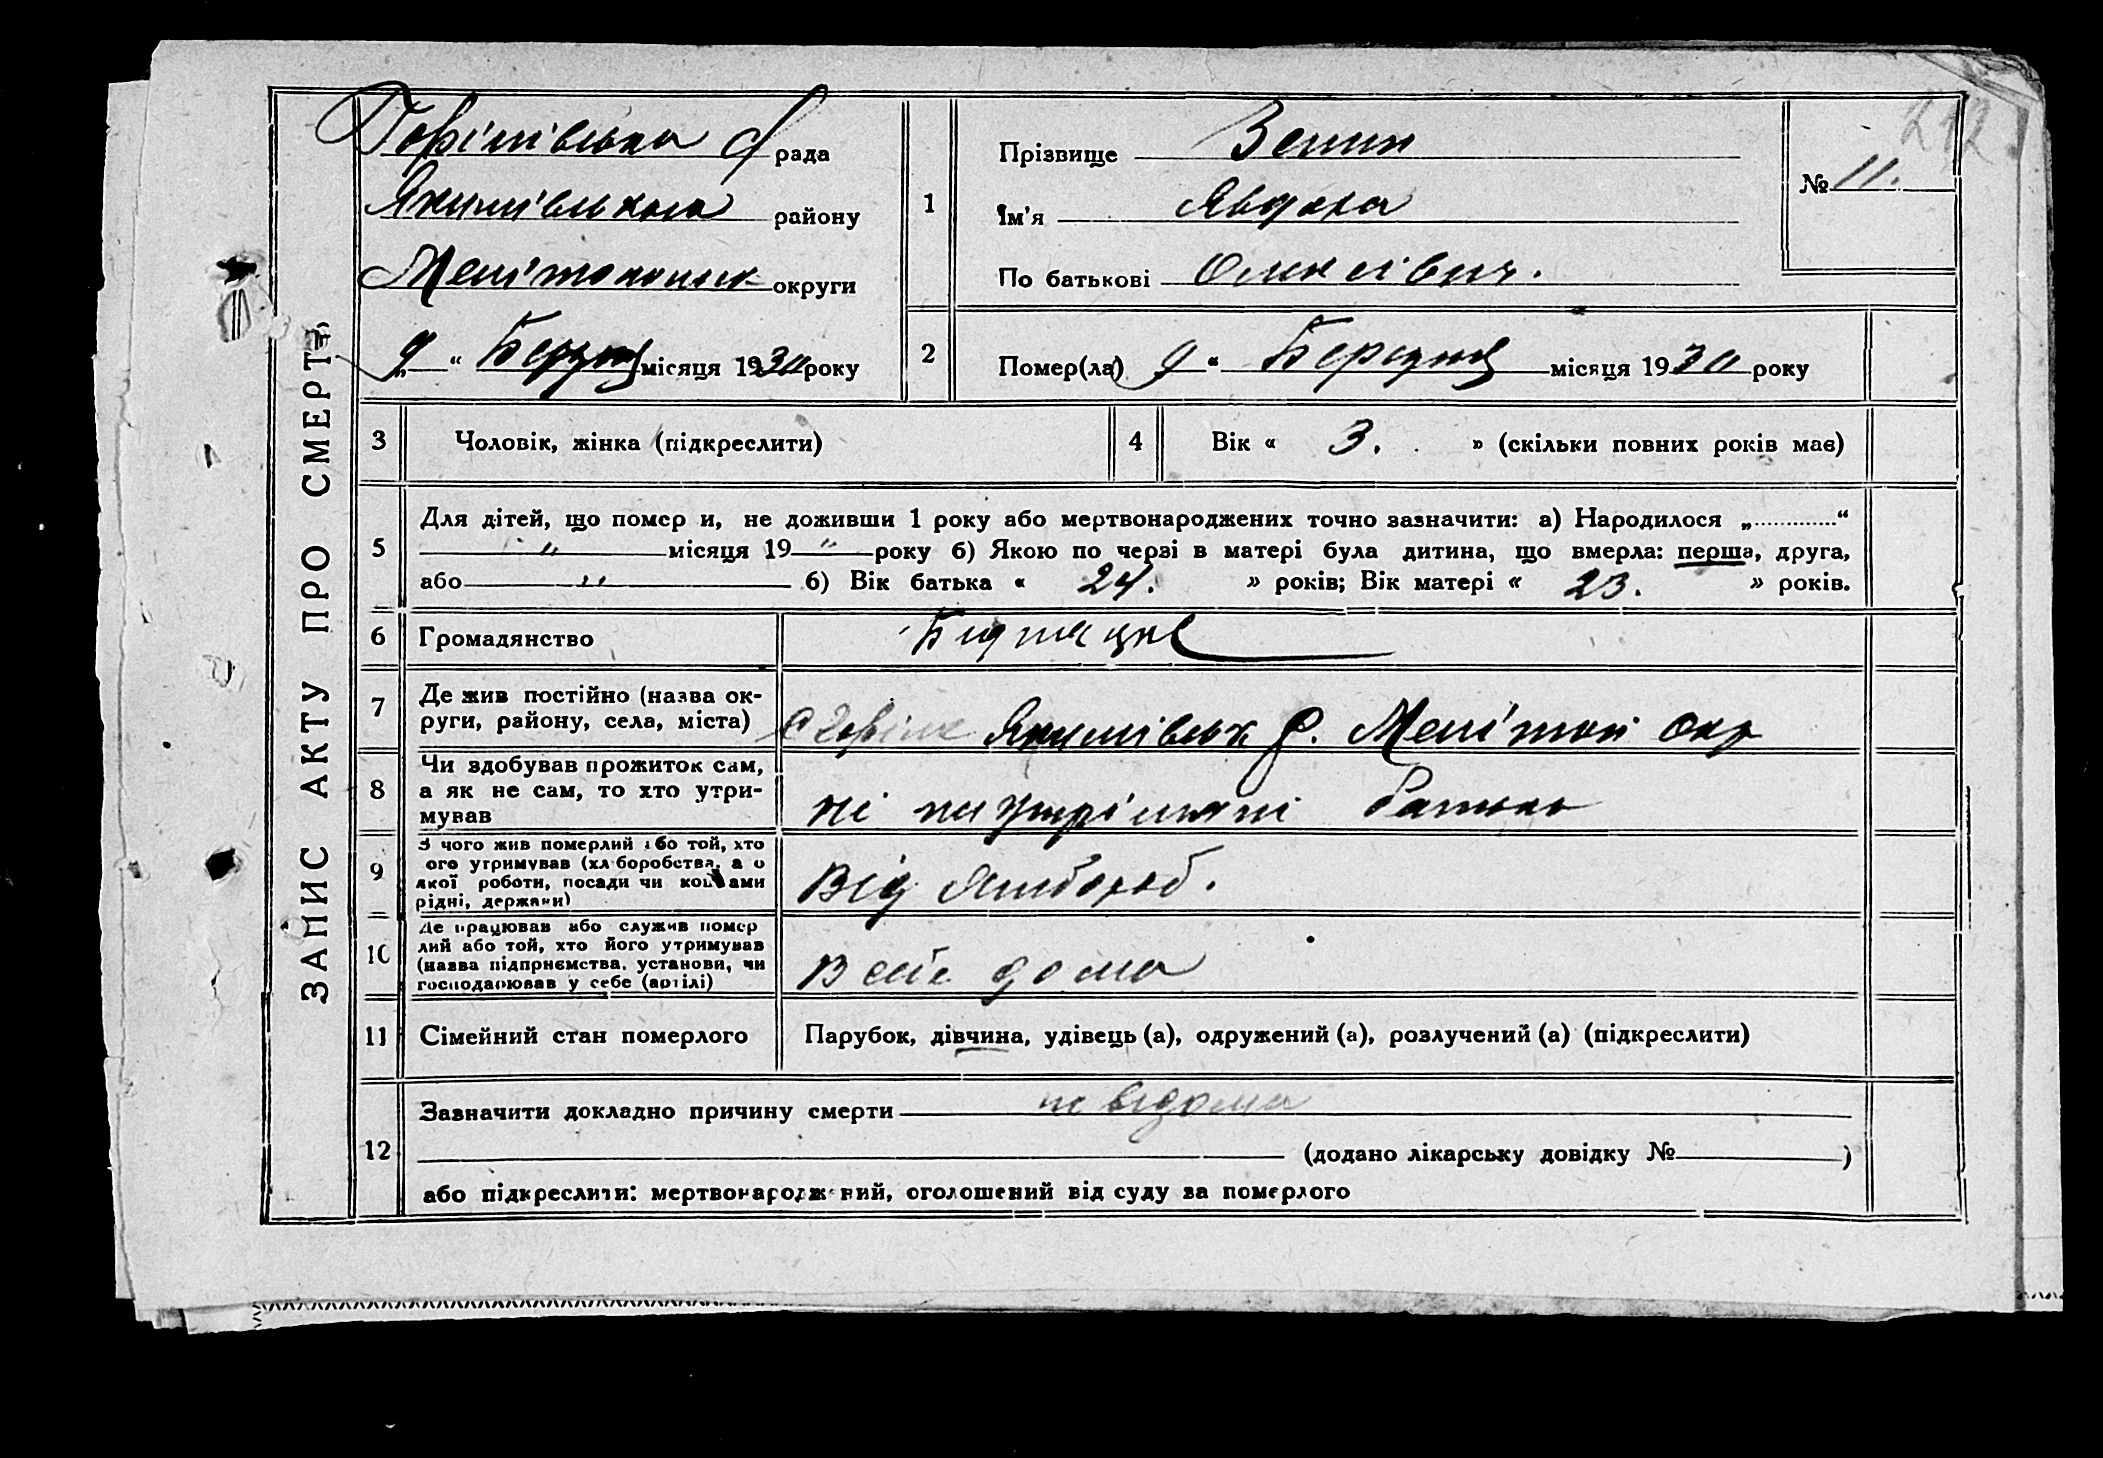 ЗАПИС АКТУ ПРО СМЕРТЬ
рада
Якимівського району
округи
9 “ Березня місяця 1930 року
1
Прізвище Зенин
Ім'я Явдоха
По батькові Олексієвич.
№ 11.
242
2
Помер(ла) 9 “ Березня місяця 1930 року
3 Чоловік, жінка (підкреслити)
4 Вік « 3. » (скільки повних років має)
5
Для дітей, що помер и, не доживши 1 року або мертвонароджених точно зазначити: а) Народилося „ “
" місяця 19 " року б) Якою по черзі в матері була дитина, що вмерла: перша, друга,
або " б) Вік батька « 24. » років; Вік матері « 23. » років.
6 Громадянство
7 Де жив постійно (назва ок-
руги, району, села, міста)
Якимівськ р. Меліитоп окр
8 Чи здобував прожиток сам,
а як не сам, то хто утри-
мував
ні на утріманні батька
9 З чого жив померлий або той, хто
ого утримував (хл боробства, а о
якої роботи, посади чи кош ами
рідні, держави)
Від
10 Де працював або служив помер
лий або той, хто його утримував
(назва підприємства, установи, чи
господарював у себе (артілі)
В себе дома
11 Сімейний стан померлого Парубок, дівчина, удівець (а), одружений (а), розлучений (а) (підкреслити)
12
Зазначити докладно причину смерти не відома
(додано лікарську довідку № )
або підкреслити: мертвонароджений, оголошений від суду за померлого